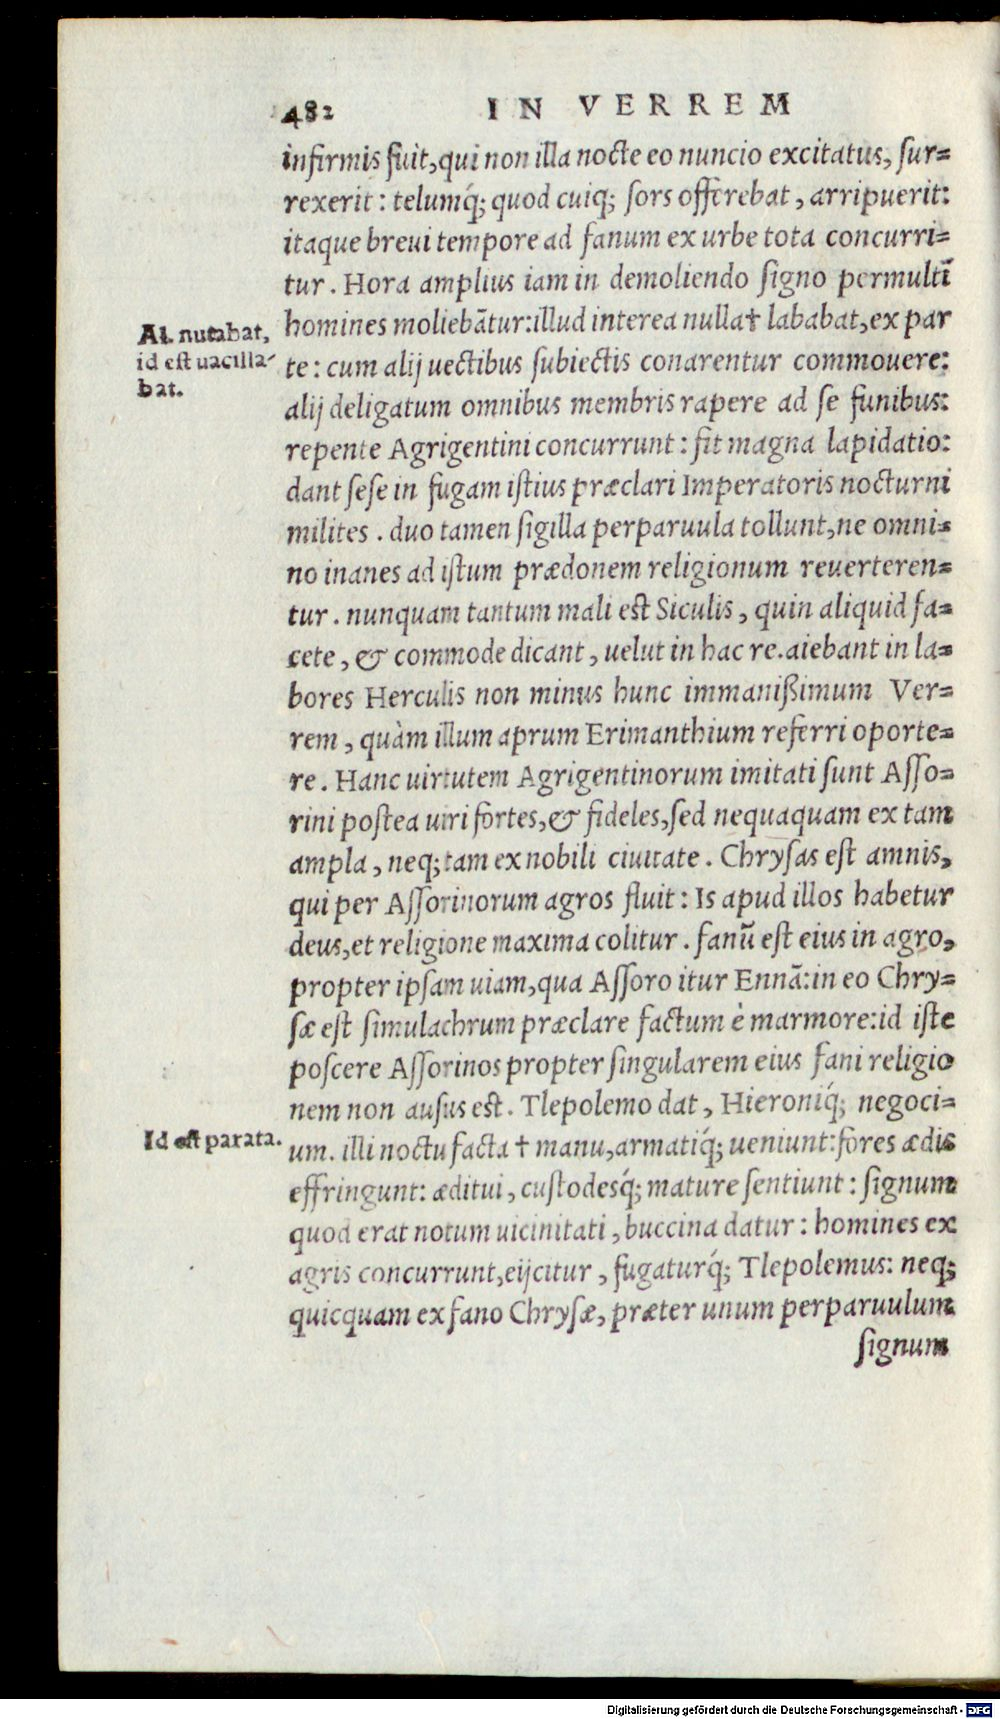 482 IN VERREM
infirmis fuit, qui non illa nocte eo nuncio excitatus, sur=
rexerit: telumq́; quod cuiq; sors offerebat, arripuerit:
itaque breui tempore ad fanum ex urbe tota concurri=
tur. Hora amplius iam in demoliendo signo permulti
homines moliebãtur: illud interea nulla† lababat, ex par
Al. nutabat,
id est uacilla
bat.
te: cum alij uectibus subiectis conarentur commouere:
alij deligatum omnibus membris rapere ad se funibus:
repente Agrigentini concurrunt: fit magna lapidatio:
dant sese in fugam istius præclari Imperatoris nocturni
milites. duo tamen sigilla perparuula tollunt, ne omni=
no inanes ad istum prædonem religionum reuerteren=
tur. nunquam tantum mali est Siculis, quin aliquid fa=
cete, & commode dicant, uelut in hac re. aiebant in la=
bores Herculis non minus hunc immanißimum Ver=
rem, quàm illum aprum Erimanthium referri oporte=
re. Hanc uirtutem Agrigentinorum imitati sunt Asso=
rini postea uiri fortes, & fideles, sed nequaquam ex tam
ampla, neq; tam ex nobili ciuitate. Chrysas est amnis,
qui per Assorinorum agros fluit: Is apud illos habetur
deus, et religione maxima colitur. fanũ est eius in agro,
propter ipsam uiam, qua Assoro itur Ennã: in eo Chry=
sæ est simulachrum præclare factum è marmore: id iste
poscere Assorinos propter singularem eius fani religio
nem non ausus est. Tlepolemo dat, Hieroniq́; negoci=
Id est parata.
um. illi noctu facta † manu, armatiq́; ueniunt: fores ædis
effringunt: æditui, custodesq́; mature sentiunt: signum
quod erat notum uicinitati, buccina datur: homines ex
agris concurrunt, eijcitur, fugaturq́; Tlepolemus: neq;
quicquam ex fano Chrysæ, præter unum perparuulum
signum
Digitalisierung gefördert durch die Deutsche Forschungsgemeinschaft - DFG